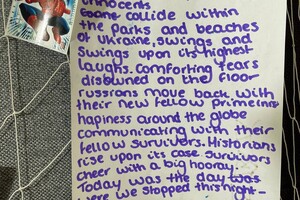 innocents
collide within
the parks and beaches
of Ukraine, swings and
swings upon its highest
laughs. Comforting tears
disowned on the floor
russians move back with
their new fellow prime mins
hapiness around the globe
communicating with their
fellow survivers. Historians
rise upon its case survivors
cheer with a big hooray.
Today was the day was
were we stopped this night-